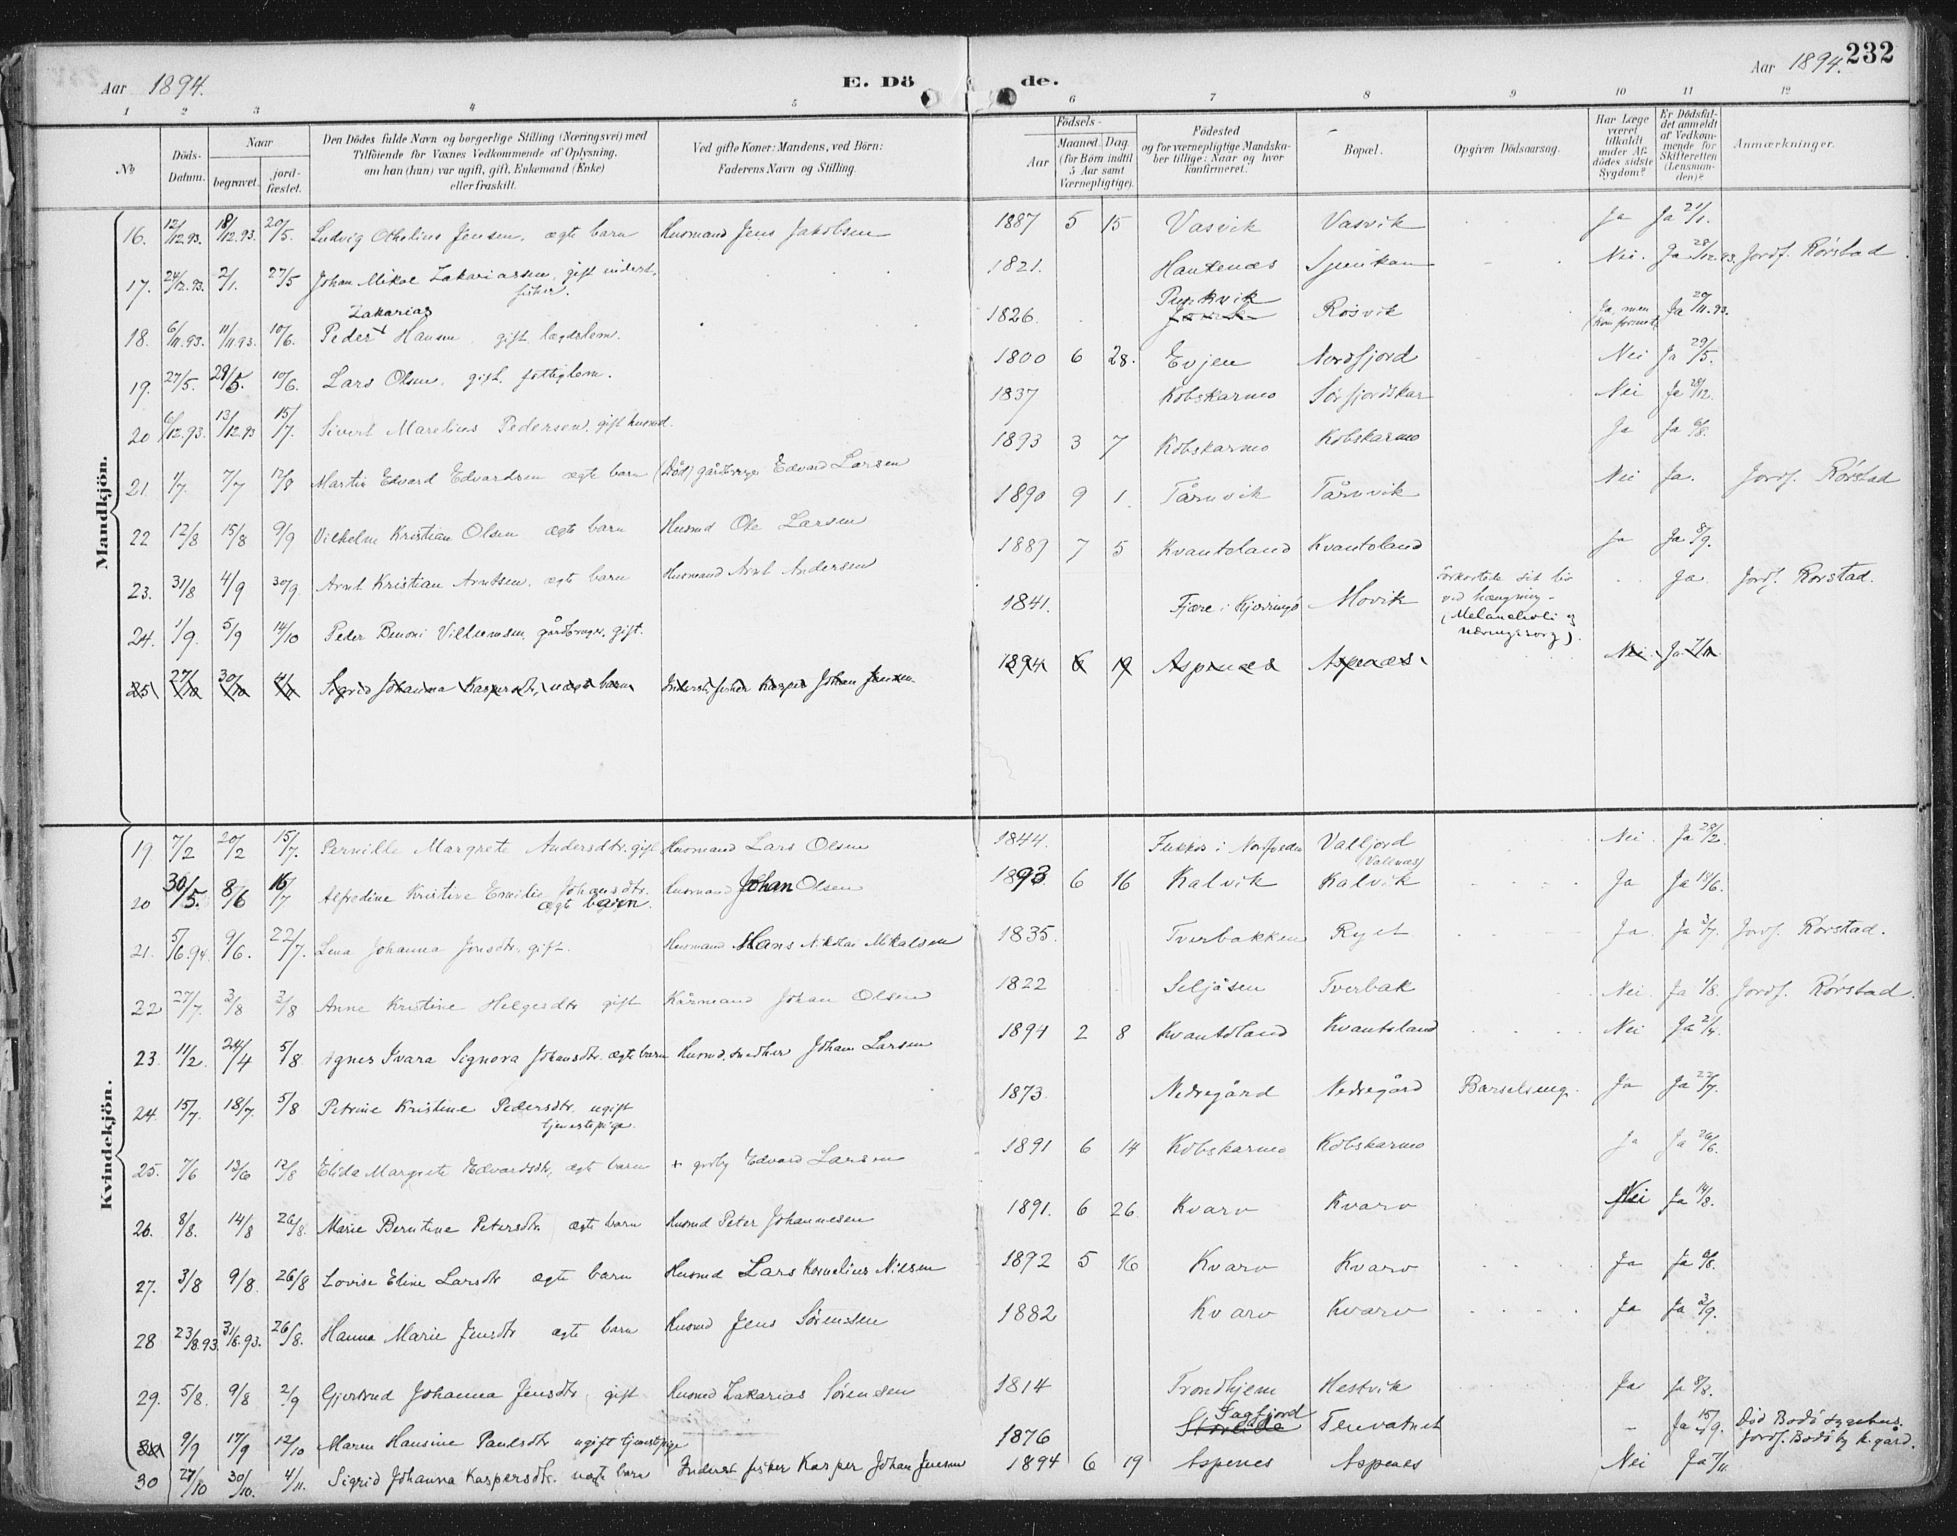 Aar 1894. E. Dö de. Aar 1894. 232
1 2 3 4 5 6 7 8 9 10 11 12
No Döds-Datum. Naar begravet. jord-fæstet. Den Dödes fulde Navn og borgerlige Stilling (Næringsvei) med Tilföiende for Voxnes Vedkommende af Oplysning, om han (hun) var ugift, gift, Enkemand (Enke) eller fraskilt. Ved gifte Koner: Mandens, ved Börn: Faderens Navn og Stilling. Födsels- Aar Maaned. Dag. (for Børn indtil 5 Aar samt Værnepligtige). Födested og for værnepligtige Mandskaber tillige: Naar og hvor konfirmeret. Bopæl. Opgiven Dödsaarsag. Har Læge været tilkaldt under Afdödes sidste Sygdom? Er Dödsfaldet anmeldt af Vedkommende for Skifteretten (Lensmanden)? Anmærkninger.
Mandkjön.
16. 12/12.93. 18/12.93. 20/5. Ludvig Othelius Jensen, ægte barn Husmand Jens Jakobsen 1887 5 15 Vasvik Vasvik Ja Ja 21/1.
17. 24/12.93. 2/1. 27/5 Johan Mikal Zakariassen, gift inderst, fisker. 1821. Haukenæs Sjunkan Nei. Ja 28/12.93. Jordf. Rørstad.
18. 6/11.93. 11/11.93. 10/6. Peder Zakarias Hansen, gift, lægdslem. 1826 Rosvik Ja, men Ja 20/11.93.
19. 27/5. 29/5. 10/6. Lars Olsen, gift, fattiglem. 1800 6 28. Evjen Nordfjord Nei Ja 29/5.
20 6/12.93. 13/12.93 15/7. Sivert Marelius Pedersen, gift husmd. 1837 Kobskarmo Sørfjordskar Nei Ja 28/12.
21. 1/7. 7/7 12/8 Martin Edvard Edvardsen ægte barn (Död) gårdbruger Edvard Larsen 1893 3 7 Kobskarmo Kobskarmo Ja Ja 6/8.
22 12/8 15/8 9/9 Vilhelm Kristian Olsen ægte barn Husmd Ole Larsen 1890 9 1. Tårnvik Tårnvik Nei Ja. Jordf. Rørstad
23. 31/8 4/9 30/9 Arnt Kristian Arntsen, ægte barn Husmand Arnt Andersen 1889 7 5 Kvantoland Kvantoland Ja Ja 8/9.
24. 1/9. 5/9 14/10 Peder Benoni Villumsen, gårdbruger, gift. 1841. Fjære i Kjerringø Movik forkortede sit liv ved hængning. (Melancholi og næringssorg). Ja. Jordf. Rørstad.
25 27/10 30/10 4/11 Sigrid Johanna Kaspersdtr, uægte barn Inderst, fisker Kasper Johan Jensen 1894 6 19 Aspenæs Aspenæs Nei Ja 7/11
Kvindekjön.
19 7/2 20/2 15/7. Pernille Margrete Andersdtr. gift Husmand Lars Olsen 1844. i Nordfjorden Valljord (Vallnæs) Nei. Ja 28/2.
20 30/5. 8/6 16/7 Alfredine Kristine Emilie Johansdtr. ægte barn. Husmand Johan Olsen 1893 6 16 Kalvik Kalvik Ja Ja 14/6.
21. 5/6.94. 9/6. 22/7. Lina Johanna Jonsdtr. gift. Husmand Hans Nikolai Mikalsen 1835. Tverbakken Ryet Ja. Ja 3/7. Jordf. Rørstad.
22 27/7. 3/8 3/8 Anne Kristine Helgesdtr gift Kårmand Johan Olsen 1822 Seljåsen Tverbak Nei. Ja 1/8. Jordf. Rørstad.
23. 11/2. 24/4 5/8 Agnes Ivara Signora Johansdtr. ægte barn Husmd. snedker Johan Larsen 1894 2 8 Kvantoland Kvantoland Nei Ja 21/4.
24. 15/7. 18/7. 5/8 Petrine Kristine Pedersdtr. ugift tjenestepige. 1873. Nedregård Nedregård Barselseng. Ja Ja 22/7.
25. 7/6 13/6 12/8 Elida Margrete Edvardsdtr, ægte barn + grdbr Edvard Larsen 1891 6 14 Kobskarmo Kobskarmo Ja Ja 26/6.
26. 8/8. 14/8 26/8. Marie Berntine Petersdtr ægte barn Husmd Peter Johannesen 1891. 6 26. Kvarv Kvarv Nei Ja 14/8.
27. 3/8 9/8. 26/8 Lovise Eline Larsdtr ægte barn Husmd Lars Kornelius Nilsen 1892 5 16 Kvarv Kvarv Ja Ja 9/8.
28 23/8.93. 31/8.93. 26/8. Hanna Marie Jensdtr ægte barn Husmd Jens Sørensen 1882 Kvarv Kvarv Ja Ja 3/9.
29. 5/8. 9/8 2/9 Gjertrud Johanna Jensdtr, gift Husmd Zakarias Sørensen 1814 Trondhjem Hestvik Ja Ja 8/8.
9/9 17/9 12/10 Maren Hansine Paulsdtr ugift tjenestepige 1876 Fagfjord Tennvatnet - Ja 15/9. Död Bodö sygehus. Jordf. Bodö by k.gård.
30 27/10 30/10. 4/11. Sigrid Johanna Kaspersdtr. uægte barn Inderst fisker Kasper Johan Jensen 1894 6 19 Aspenes Aspenes Nei Ja 7/11.